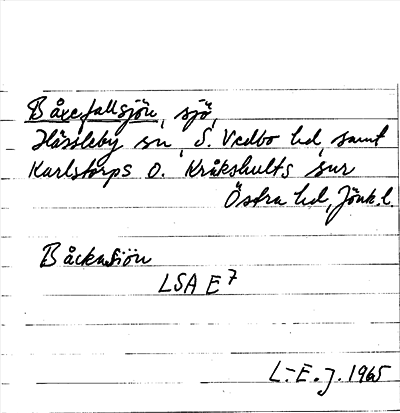 Båxefallsjön, sjö,
Hässleby sn, S. Vedbo hd, samt
Karlstorps o. Kråkshults snr
Östra hd, Jönk.l.
Båckasiön
LSA E7
L.-E. J. 1965